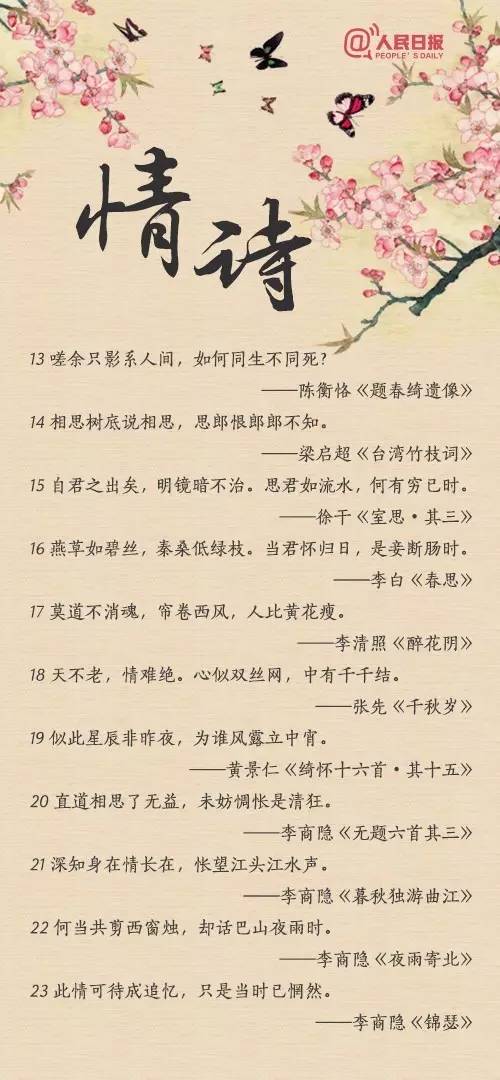 @人民日报
PEOPLE'S DAILY
情诗
13 嗟余只影系人间，如何同生不同死？
——陈衡恪《题春绮遗像》
14 相思树底说相思，思郎恨郎郎不知。
——梁启超《台湾竹枝词》
15 自君之出矣，明镜暗不治。思君如流水，何有穷已时。
——徐干《室思·其三》
16 燕草如碧丝，秦桑低绿枝。当君怀归日，是妾断肠时。
——李白《春思》
17 莫道不消魂，帘卷西风，人比黄花瘦。
——李清照《醉花阴》
18 天不老，情难绝。心似双丝网，中有千千结。
——张先《千秋岁》
19 似此星辰非昨夜，为谁风露立中宵。
——黄景仁《绮怀十六首·其十五》
20 直道相思了无益，未妨惆怅是清狂。
——李商隐《无题六首其三》
21 深知身在情长在，怅望江头江水声。
——李商隐《暮秋独游曲江》
22 何当共剪西窗烛，却话巴山夜雨时。
——李商隐《夜雨寄北》
23 此情可待成追忆，只是当时已惘然。
——李商隐《锦瑟》